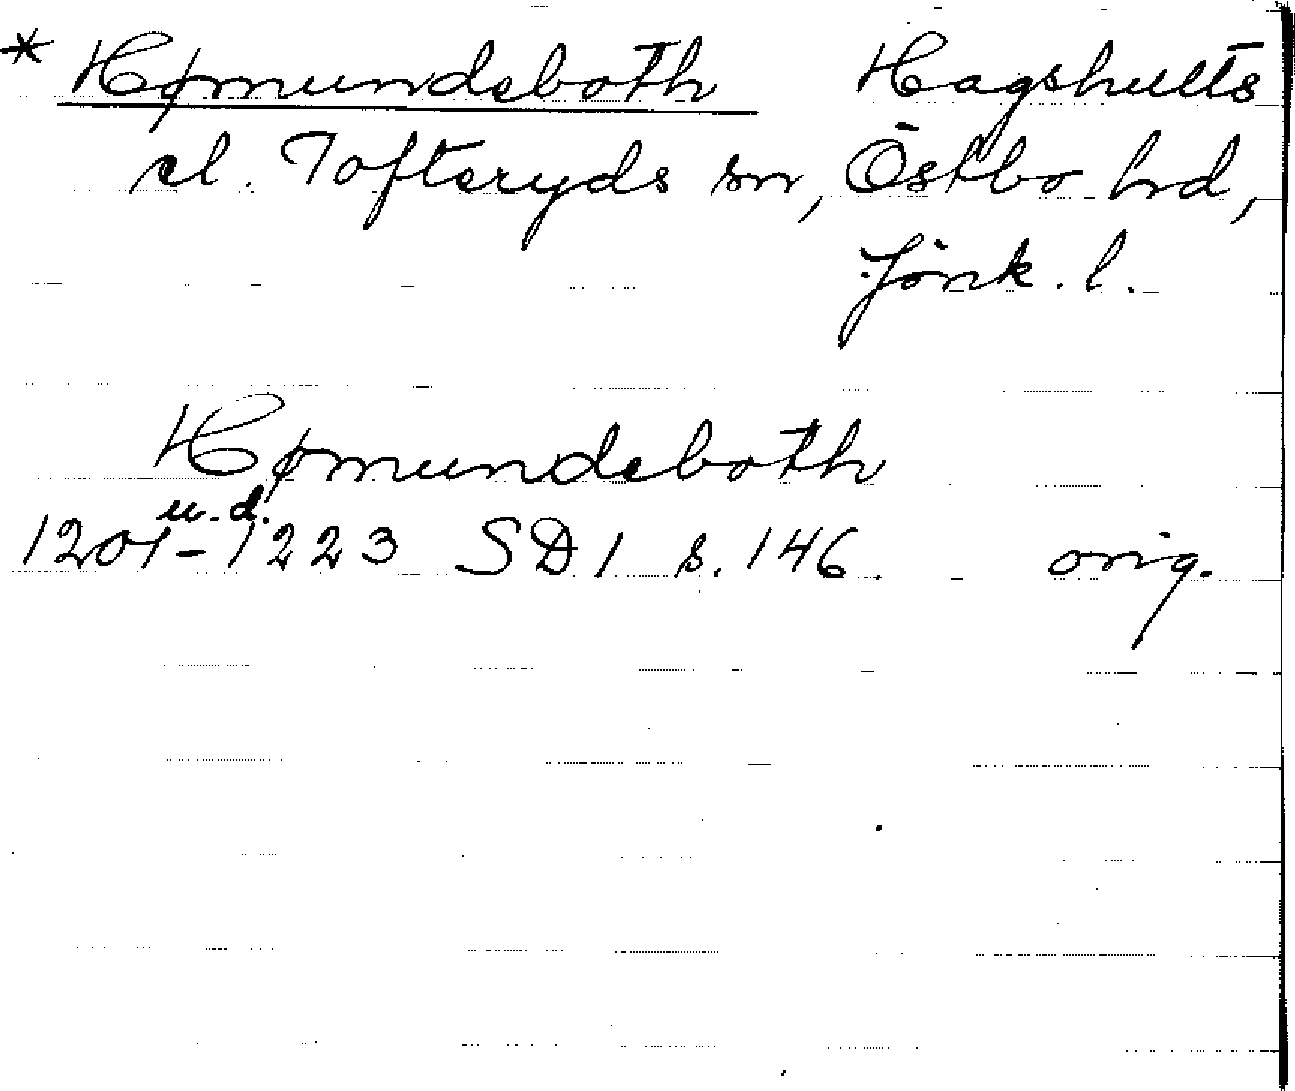 * Hømundsboth Hagshults
el. Tofteryds sn, Östbo hd,
Jönk. l.
Hømundsboth
u. d.
1201-1223 SD 1 s. 146 orig.